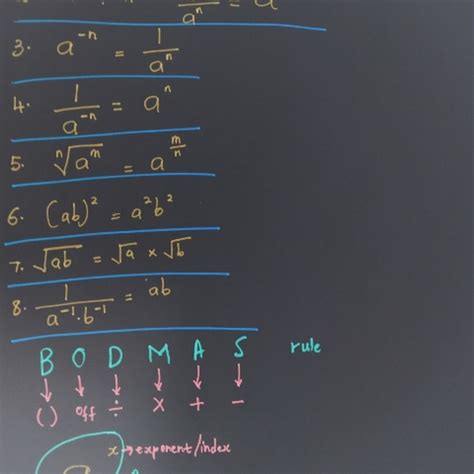 aⁿ = a
3. a⁻ⁿ = 1/aⁿ
4. 1/a⁻ⁿ = aⁿ
5. ⁿ√aᵐ = a^(m/n)
6. (ab)² = a²b²
7. √ab = √a × √b
8. 1/(a⁻¹·b⁻¹) = ab
B O D M A S rule
↓ ↓ ↓ ↓ ↓ ↓
() off ÷ × + −
x → exponent/index
a